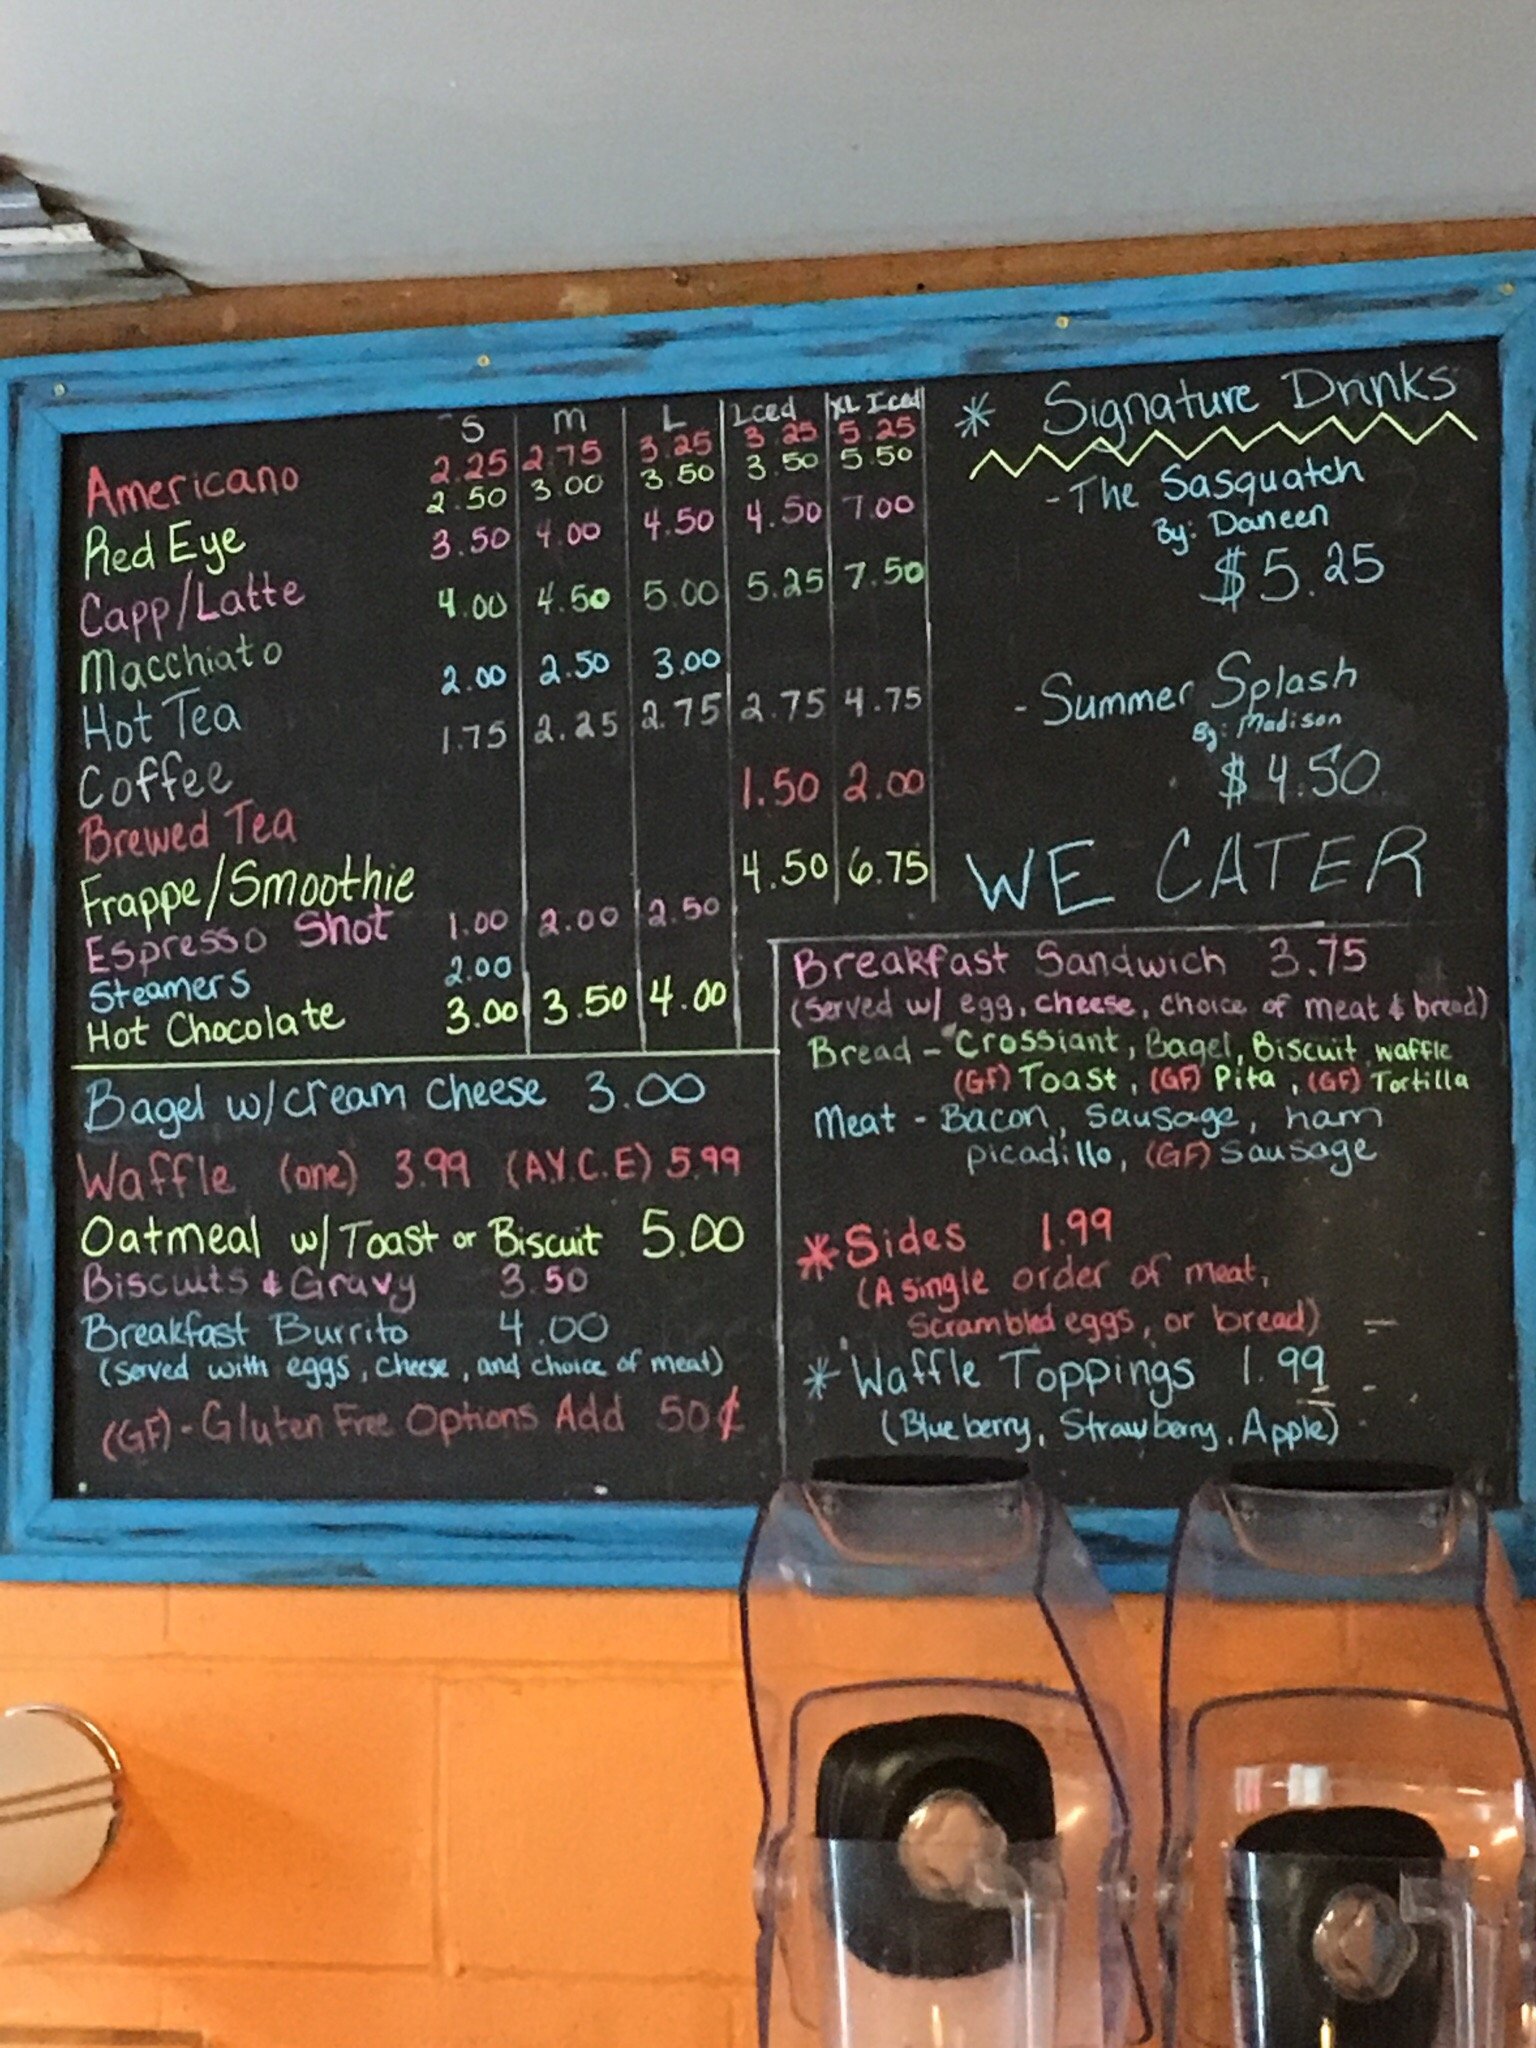 S M L Iced XL Iced
Americano 2.25 2.75 3.25 3.25 5.25
Red Eye 2.50 3.00 3.50 3.50 5.50
Capp/Latte 3.50 4.00 4.50 4.50 7.00
Macchiato 4.00 4.50 5.00 5.25 7.50
Hot Tea 2.00 2.50 3.00
Coffee 1.75 2.25 2.75 2.75 4.75
Brewed Tea 1.50 2.00
Frappe/Smoothie 4.50 6.75
Espresso Shot 1.00 2.00 2.50
Steamers 2.00
Hot Chocolate 3.00 3.50 4.00
* Signature Drinks
- The Sasquatch
By: Daneen
$5.25
- Summer Splash
By: Madison
$4.50
WE CATER
Bagel w/cream cheese 3.00
Waffle (one) 3.99 (A.Y.C.E) 5.99
Oatmeal w/Toast or Biscuit 5.00
Biscuits & Gravy 3.50
Breakfast Burrito 4.00
(served with eggs, cheese, and choice of meat)
(GF) - Gluten Free Options Add 50¢
Breakfast Sandwich 3.75
(served w/ egg, cheese, choice of meat & bread)
Bread - Crossiant, Bagel, Biscuit, waffle
(GF) Toast, (GF) Pita, (GF) Tortilla
Meat - Bacon, sausage, ham
picadillo, (GF) sausage
*Sides 1.99
(A single order of meat,
scrambled eggs, or bread)
* Waffle Toppings 1.99
(Blueberry, Strawberry, Apple)